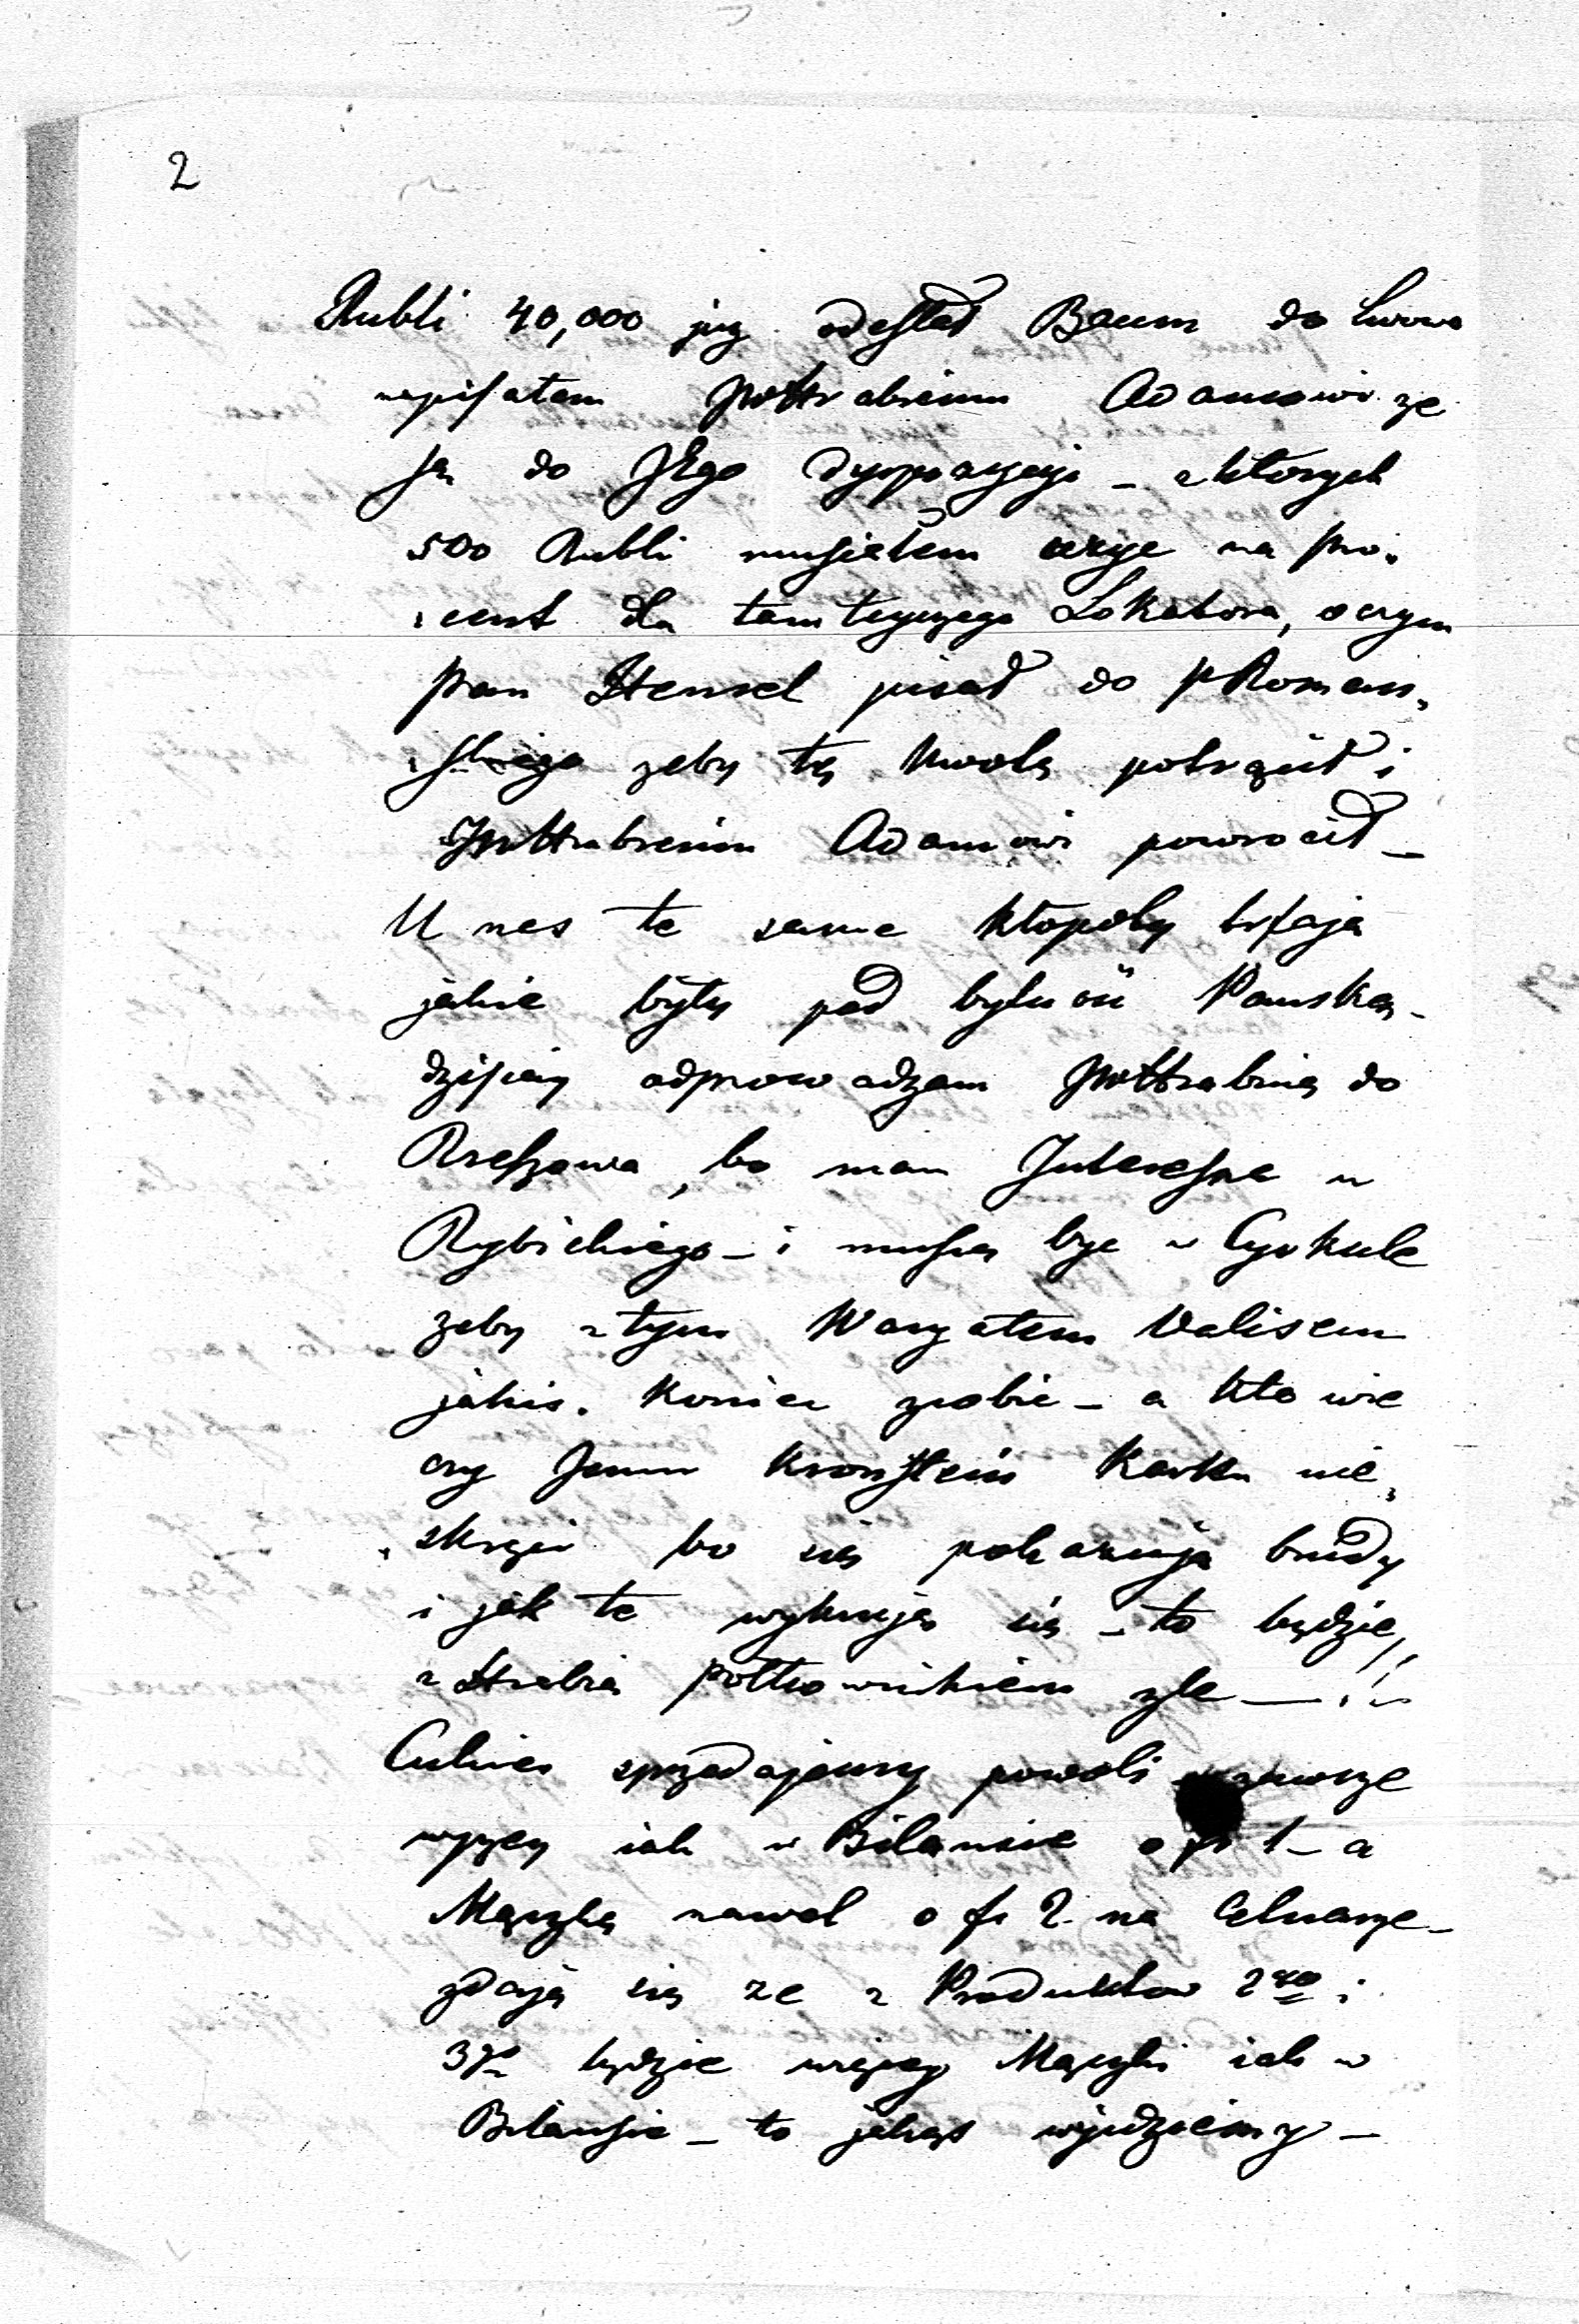 2
Rubli 40,000 już odesłał Baum do Lwowa
napisałem JWHrabiemu Adamowi że
są do JEgo dyspozycyi – z ktorych
500 Rubli musiałem wziąc na pro-
cent dla tamteyszego Lokatora, o czym
Pan Hensel pisał do PRomań-
skiego zeby tę kwotę potrącił i
JWHrabiemu Adamowi powrocił –
U nas te same kłopoty trfają
jakie były pod bytność Pańską –
dzisiay odprowadzam JWHrabinę do
Rzeszowa, bo mam Interesse u
Rybickiego – i muszę byc w Cyrkule
zeby z tym Waryatem Valisem
jakis koniec zrobic – a kto wie
czy Jemu Kronstein karku nie
skręci bo się pokazują brudy
i jak te wykryją się – to będzie
z Hrabią połkownikiem zle – !!
Cukier sprzedajemy powoli zawsze
wyzey jak w Bilansie o fr 1 – a
Mączkę nawet o fr 2. na Cetnarze –
zdaję się ze z Produktow 2go i
3go będzie więcey Mączki jak w
Bilansie – to jakoś wyjdziemy –